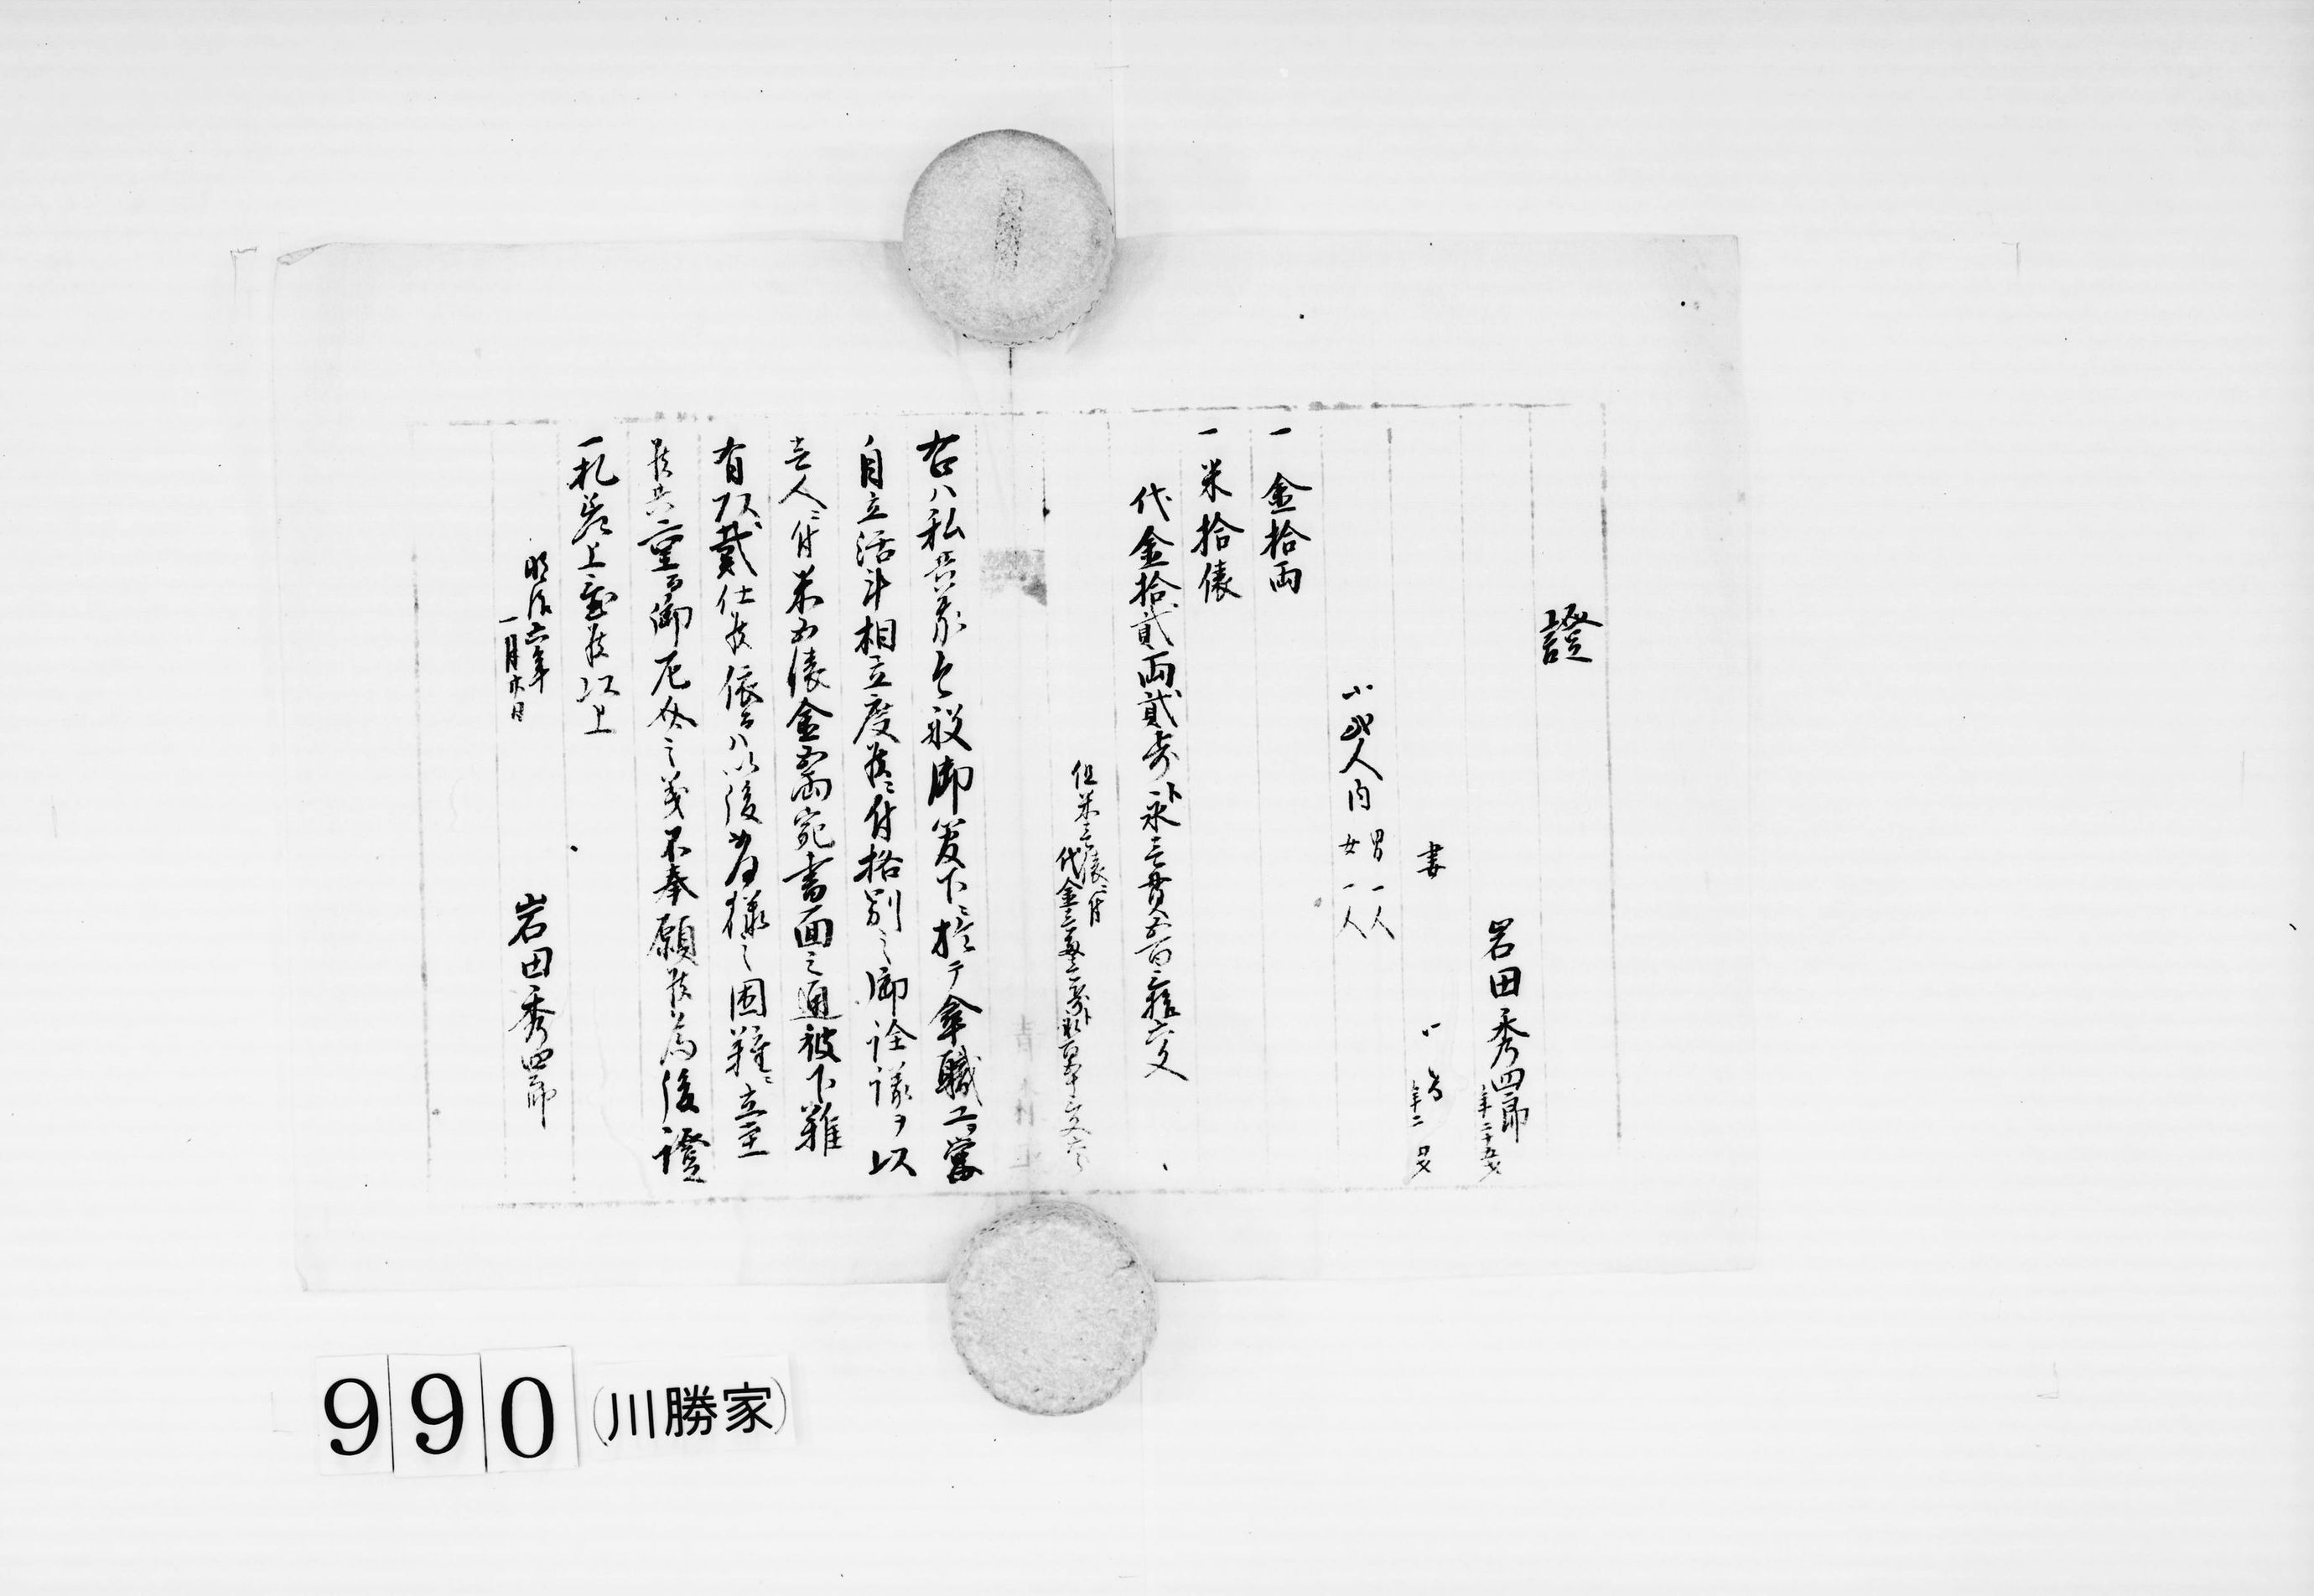 證
岩田秀四郎
年二十五才
妻
年二
〆弐人内 男一人
女一人
一金拾両
一米拾俵
代金拾貳両貳歩ト永壱貫五百
但米壱俵ニ付
代金壱
右ハ私共家今般御管下ニ於テ傘職工営
自立活計相立度候ニ付格別之御詮議ヲ以
壱人ニ付米五俵金五両宛書面之通被下難
有頂戴仕候依而ハ以後如何様之困難ニ立至
候共重而御厄介之義不奉願候為後證
一札差上置候以上
明治六年
一月廿日
岩田秀四郎
990
(川勝家)